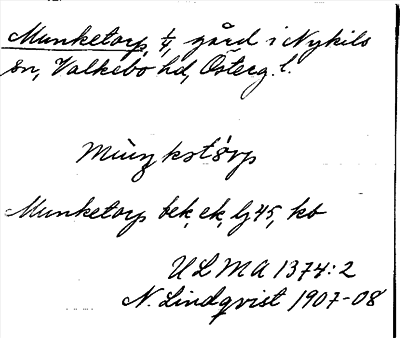 Munketorp, 1/4, gård i Nykils
sn, Valkebo hd, Österg. l.
Munketorp bek, ek, lj 45, kb
ULMA 1374:2
N. Lindqvist 1907-08